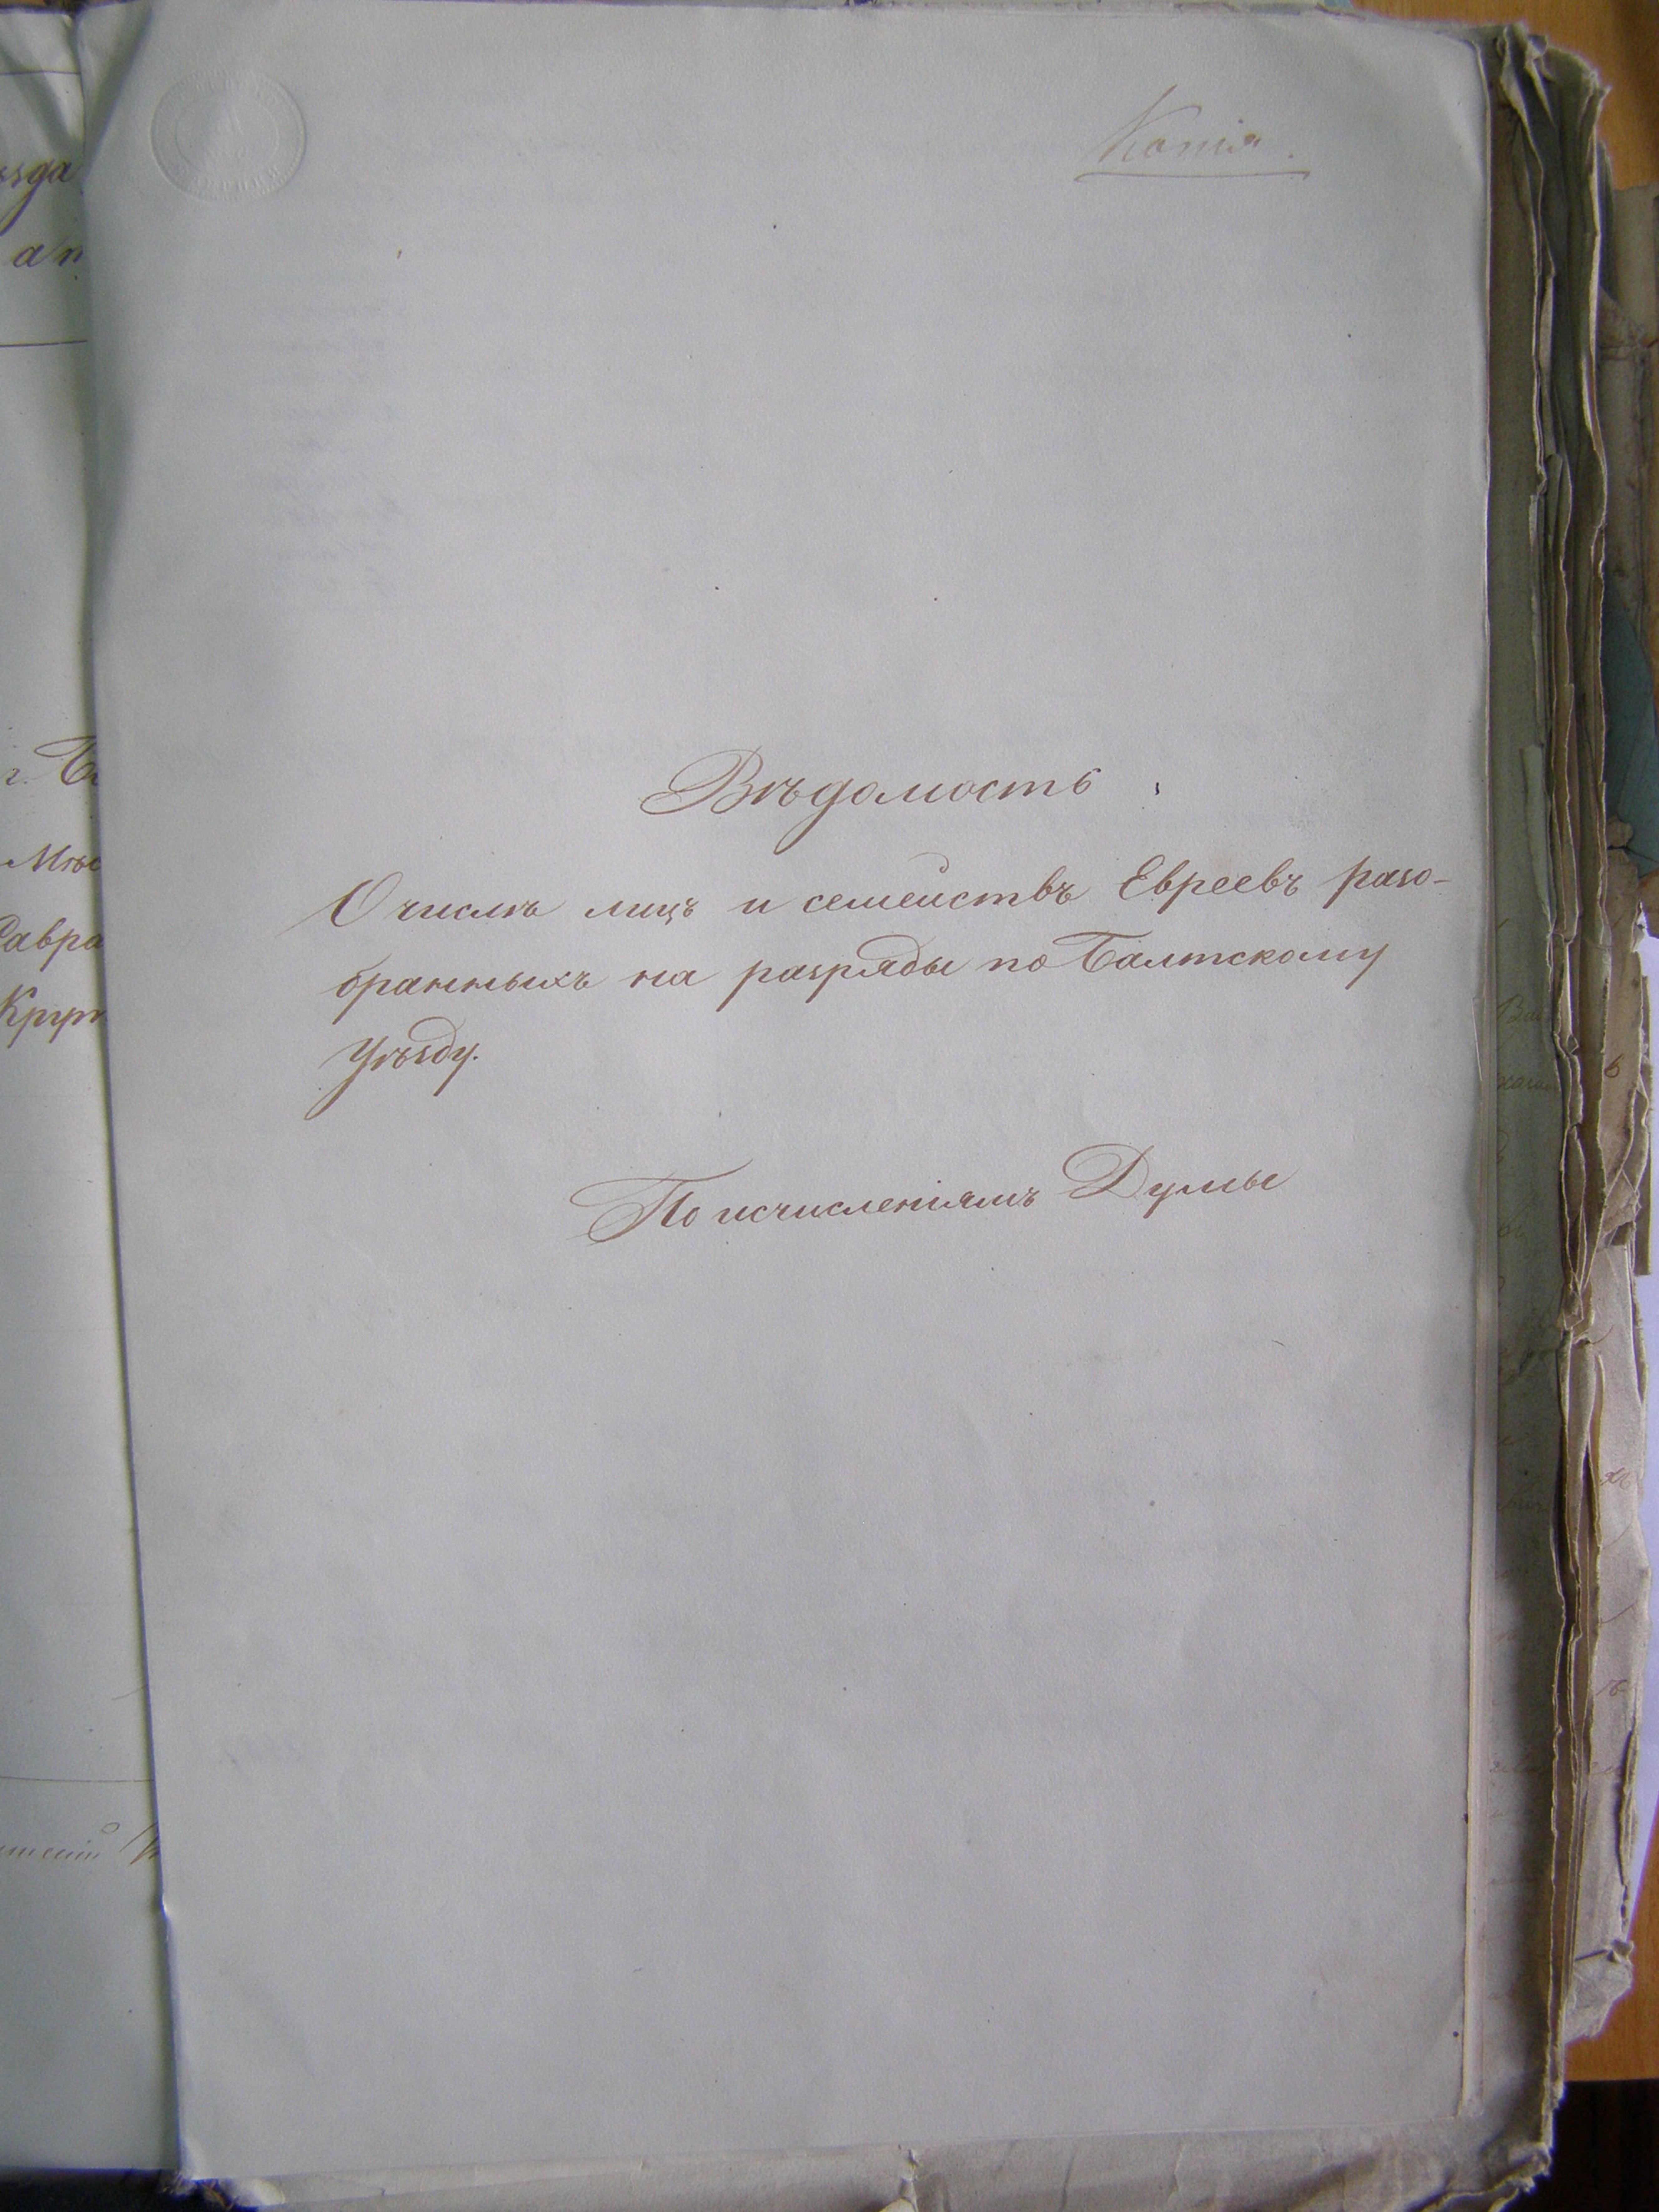 Копія.
Вѣдомость
О числѣ лицъ и семействъ Евреевъ разо-
бранныхъ на разряды по Балтскому
Уѣзду.
По исчисленіямъ Думы